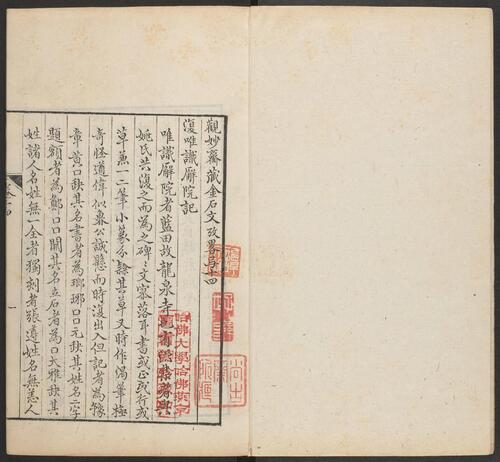 觀妙齋藏金石文攷畧卷十四
復唯識廨院記
唯識廨院者藍田故龍泉寺
姚氏共復之而為之碑文寥落耳書或正或行或
草兼一二筆小篆分隸其草又時作渴筆極
奇怪遒偉似魯公誠懸而時復出入但記者為豫
章黃口缺其名書者為瑯琊口元缺其姓名二字
題額者為鄭口口闕其名立石者為口大雅缺其
姓諸人名姓無一全者獨刻者張遵姓名無恙人
哈佛大學哈佛燕京
一